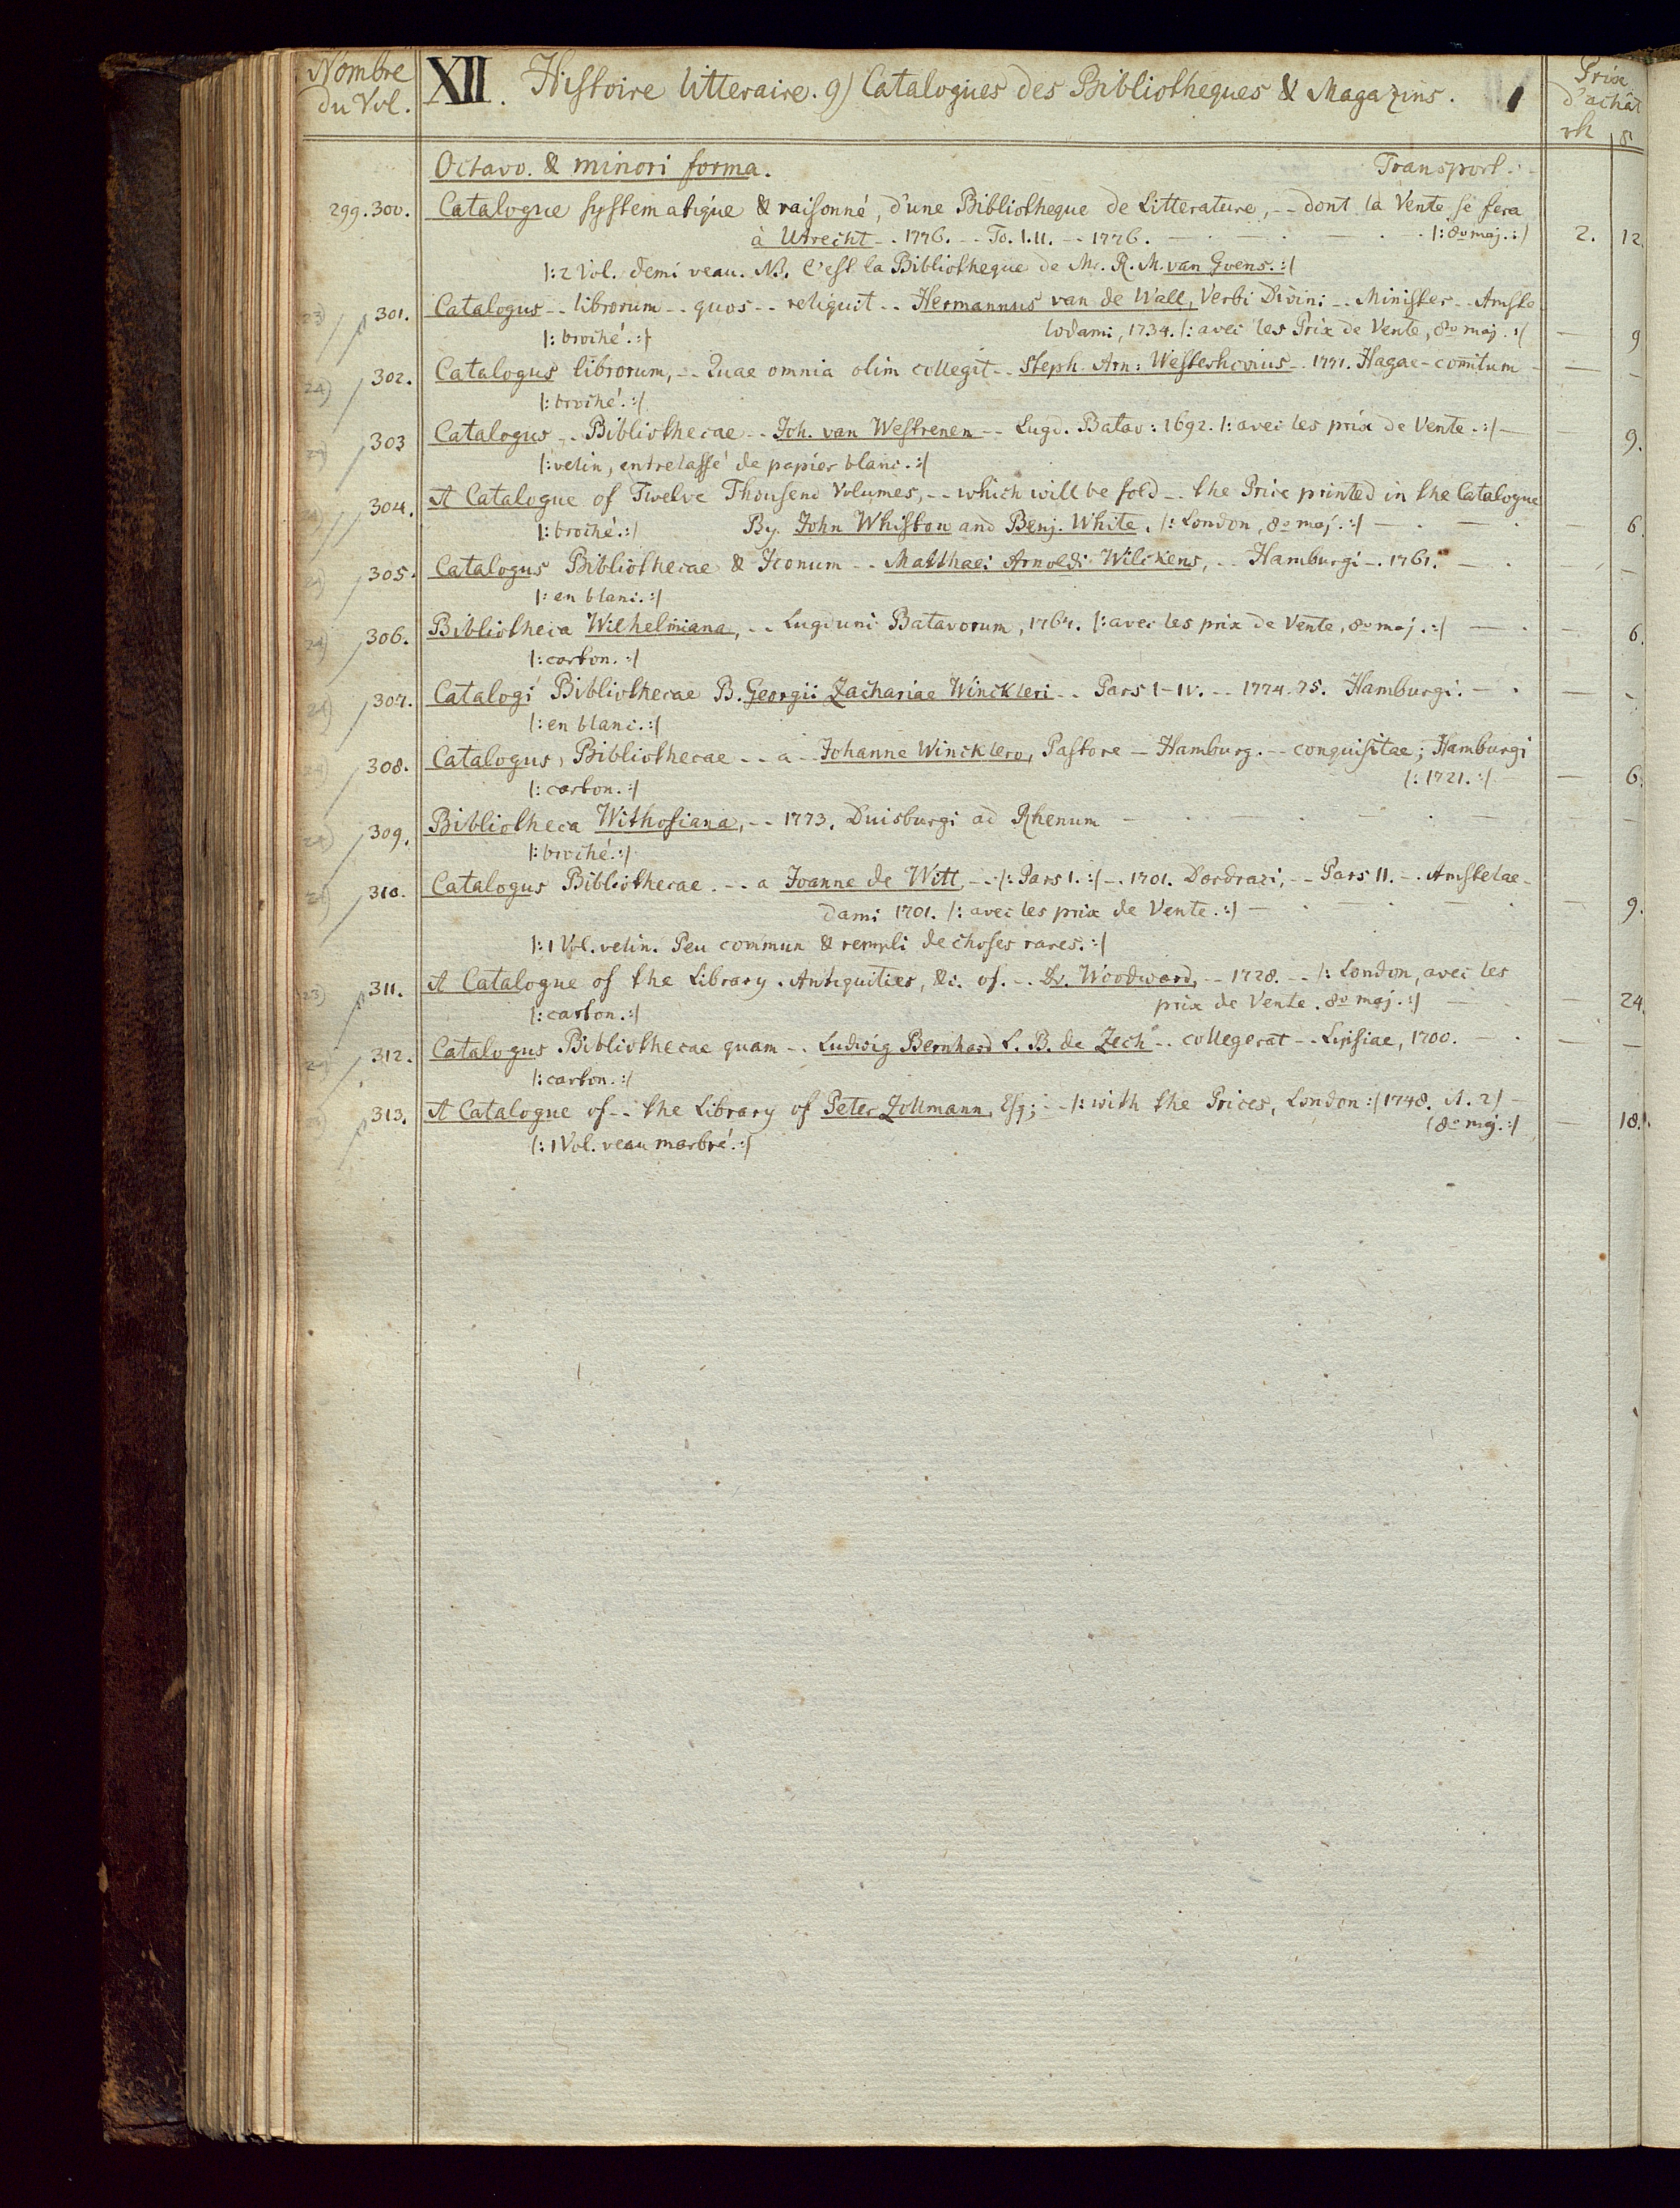 Nombre du Vol.
XII. Histoire litteraire. 9) Catalogues des Bibliotheques & Magazins.
Prix d'achât
rh s
Octavo. & minori forma. Transport.
299.300. Catalogue systematique & raisonné, d'une Bibliotheque de Litterature, -- dont la Vente se fera
à Utrecht -. 1776. -- To. I.II. -- 1776. |: 8º maj. :| 2. 12
|: 2 Vol. demi veau. NB. C'est la Bibliotheque de Mr. R. M. van Goens. :|
23) 301. Catalogus -- librorum -- quos -- reliquit -- Hermannus van de Wall, Verbi Divini -- Minister -- Amste
|: broché. :| lodami, 1734. |: avec les Prix de Vente, 8º maj. :| — 9
24) 302. Catalogus librorum, -- Quae omnia olim collegit -- Steph. Arn: Westerhovius -- 1771. Hagae-comitum — —
|: broché. :|
24) 303 Catalogus -- Bibliothecae -- Joh. van Westrenen -- Lugd. Batav: 1692. |: avec les prix de Vente. :| — 9.
|: velin, entrelassé de papier blanc. :|
24) 304. A Catalogue of Twelve Thousend Volumes, -- which will be sold -- the Price printed in the Catalogue
|: broché. :| By. John Whiston and Benj. White. |: London, 8º maj. :| — 6.
24) 305. Catalogus Bibliothecae & Iconum -- Matthaei Arnoldi Wilckens, -- Hamburgi -. 1761. — —
|: en blanc. :|
24) 306. Bibliotheca Wilhelmiana, -- Lugduni Batavorum, 1764. |: avec les prix de Vente, 8º maj. :| — 6.
|: carton. :|
24) 307. Catalogi Bibliothecae B. Georgii Zachariae Winckleri -- Pars I-IV. -- 1774.75. Hamburgi. — —
|: en blanc. :|
24) 308. Catalogus, Bibliothecae -- a -- Johanne Wincklero, Pastore — Hamburg. -- conquisitae; Hamburgi
|: carton. :| |: 1721. :| — 6.
24) 309. Bibliotheca Withofiana, -- 1773. Duisburgi ad Rhenum — —
|: broché. :|
24) 310. Catalogus Bibliothecae. -- a Joanne de Witt, -- |: Pars I. :| -. 1701. Dordraci, -- Pars II. -. Amstelae-
dami 1701. |: avec les prix de Vente. :| — 9.
|: 1 Vol. velin. Peu commun & rempli de choses rares. :|
23) 311. A Catalogue of the Library. Antiquities, &c. of. -- Dr. Woodward, -- 1728. -- |: London, avec les
|: carton. :| prix de Vente. 8º maj. :| — 24.
24) 312. Catalogus Bibliothecae quam -. Ludwig Bernhard L. B. de Zech -- collegerat -- Lipsiae, 1700. — —
|: carton. :|
313. A Catalogue of -- the Library of Peter Zollmann, Esq; -- |: with the Prices, London :| 1748.
|: 1 Vol. veau marbré. :| (8º maj. :| — 18.